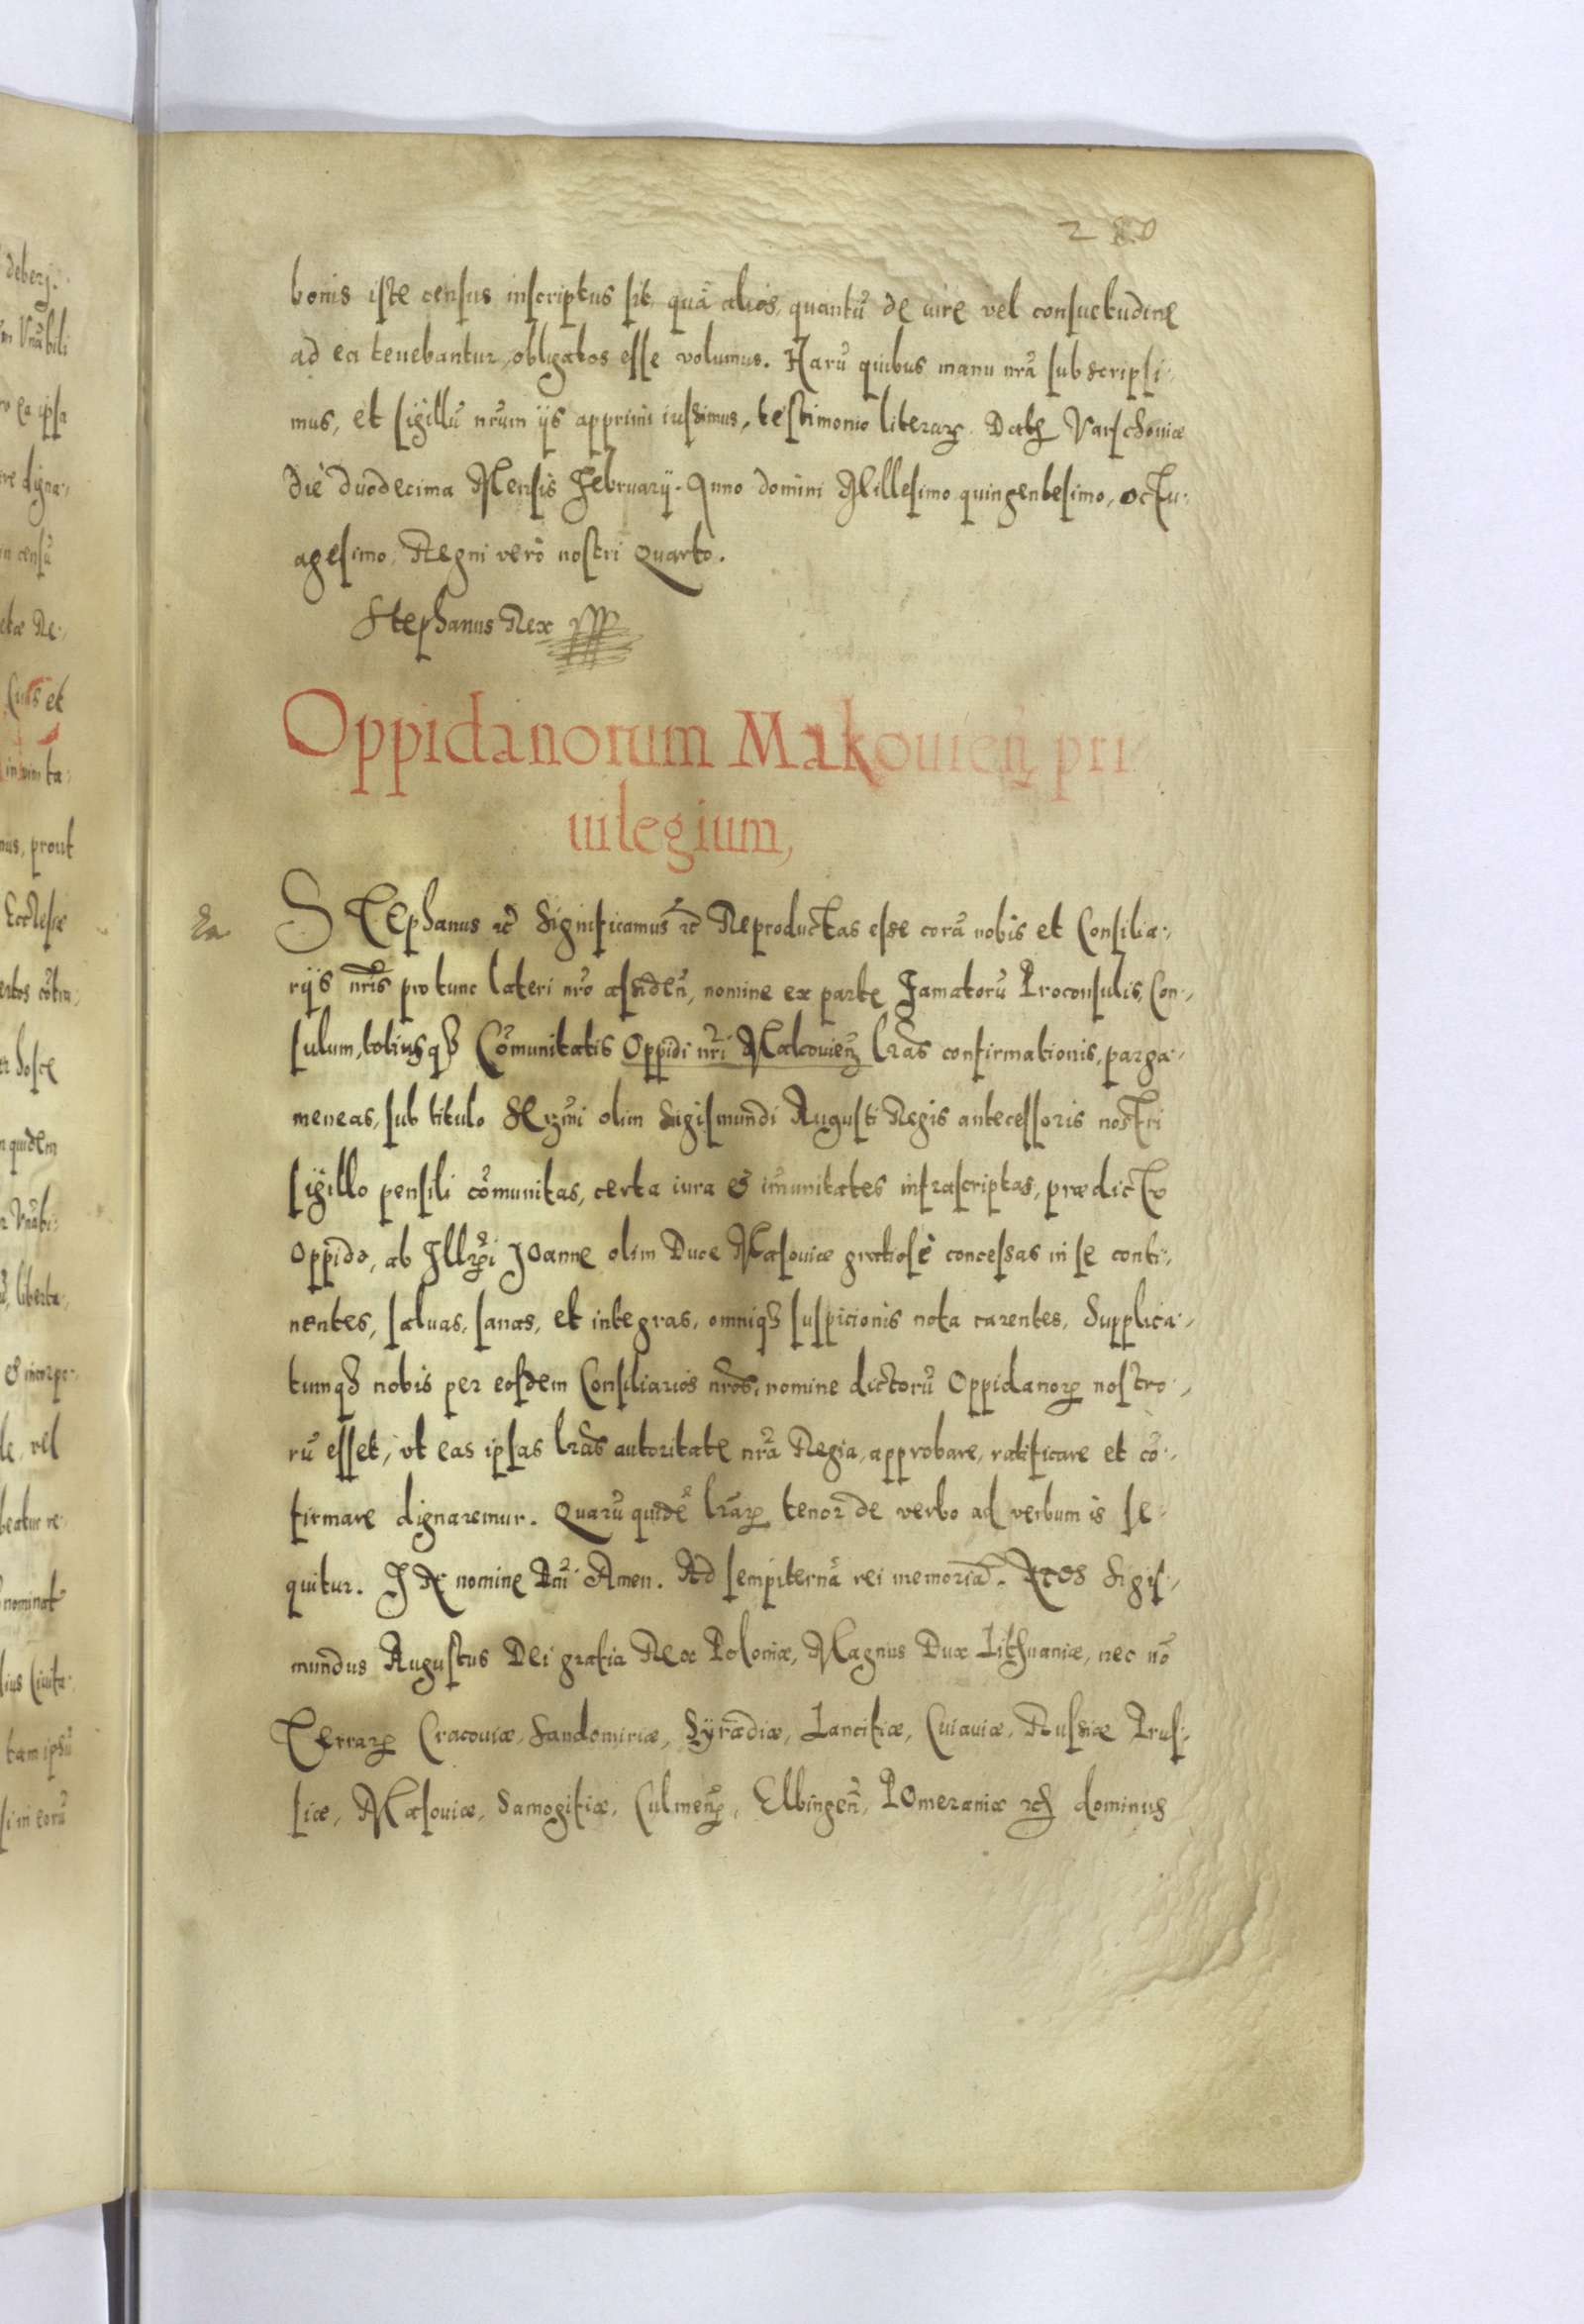 280
bonis iste census inscriptus sit, quā alios, quantū de iure vel consuetudine
ad ea tenebantur, obligatos esse volumus. Harū quibus manu nrā subscripsi-
mus, et sigillū nrūm ijs apprimi iussimus, testimonio literarꝝ. Datꝭ Varschouiæ
die duodecima Mensis Februarij. Anno domini Millesimo quingentesimo, octu-
agesimo, Regni verò nostri Quarto.
Stephanus Rex
Oppidanorum Makouieñ pri-
uilegium,
STEphanus ꝛc̃ Significamus ꝛc̃ Reproductas esse corā nobis et Consilia-
rijs nr̄is pro tunc lateri nr̄o assideñ, nomine ex parte Famatorū Proconsulis, Con-
sulum, totiusqȝ Cōmunitatis Oppidi nr̄i Makouieñ lr̄as confirmationis, parga-
meneas, sub titulo Ser̄mi olim Sigismundi Augusti Regis antecessoris nostri
sigillo pensili cōmunitas, certa iura & im̄unitates infrascriptas, prædicto
Oppido, ab Illr̄i Joanne olim Duce Masouiæ gratiosè concessas in se conti-
nentes, saluas, sanas, et integras, omniqȝ suspicionis nota carentes, Supplica-
tumqȝ nobis per eosdem Consiliarios nr̄os, nomine dictorū Oppidanorꝝ nostro-
rū esset, vt eas ipsas lr̄as autoritate nr̄a Regia, approbare, ratificare et cō-
firmare dignaremur. Quarū quidē lr̄arꝝ tenor de verbo ad verbum is se-
quitur. IN nomine Dn̄i Amen. Ad sempiternā rei memoriā. Nos Sigis-
mundus Augustus Dei gratia Rex Poloniæ, Magnus Dux Lithuaniæ, nec nō
Terrarꝝ Cracouiæ, Sandomiriæ, Syradiæ, Lancitiæ, Cuiauiæ, Russiæ Prus-
siæ, Masouiæ, Samogitiæ, Culmeñ, Elbingeñ, POmeraniæ ꝛcꝭ dominus